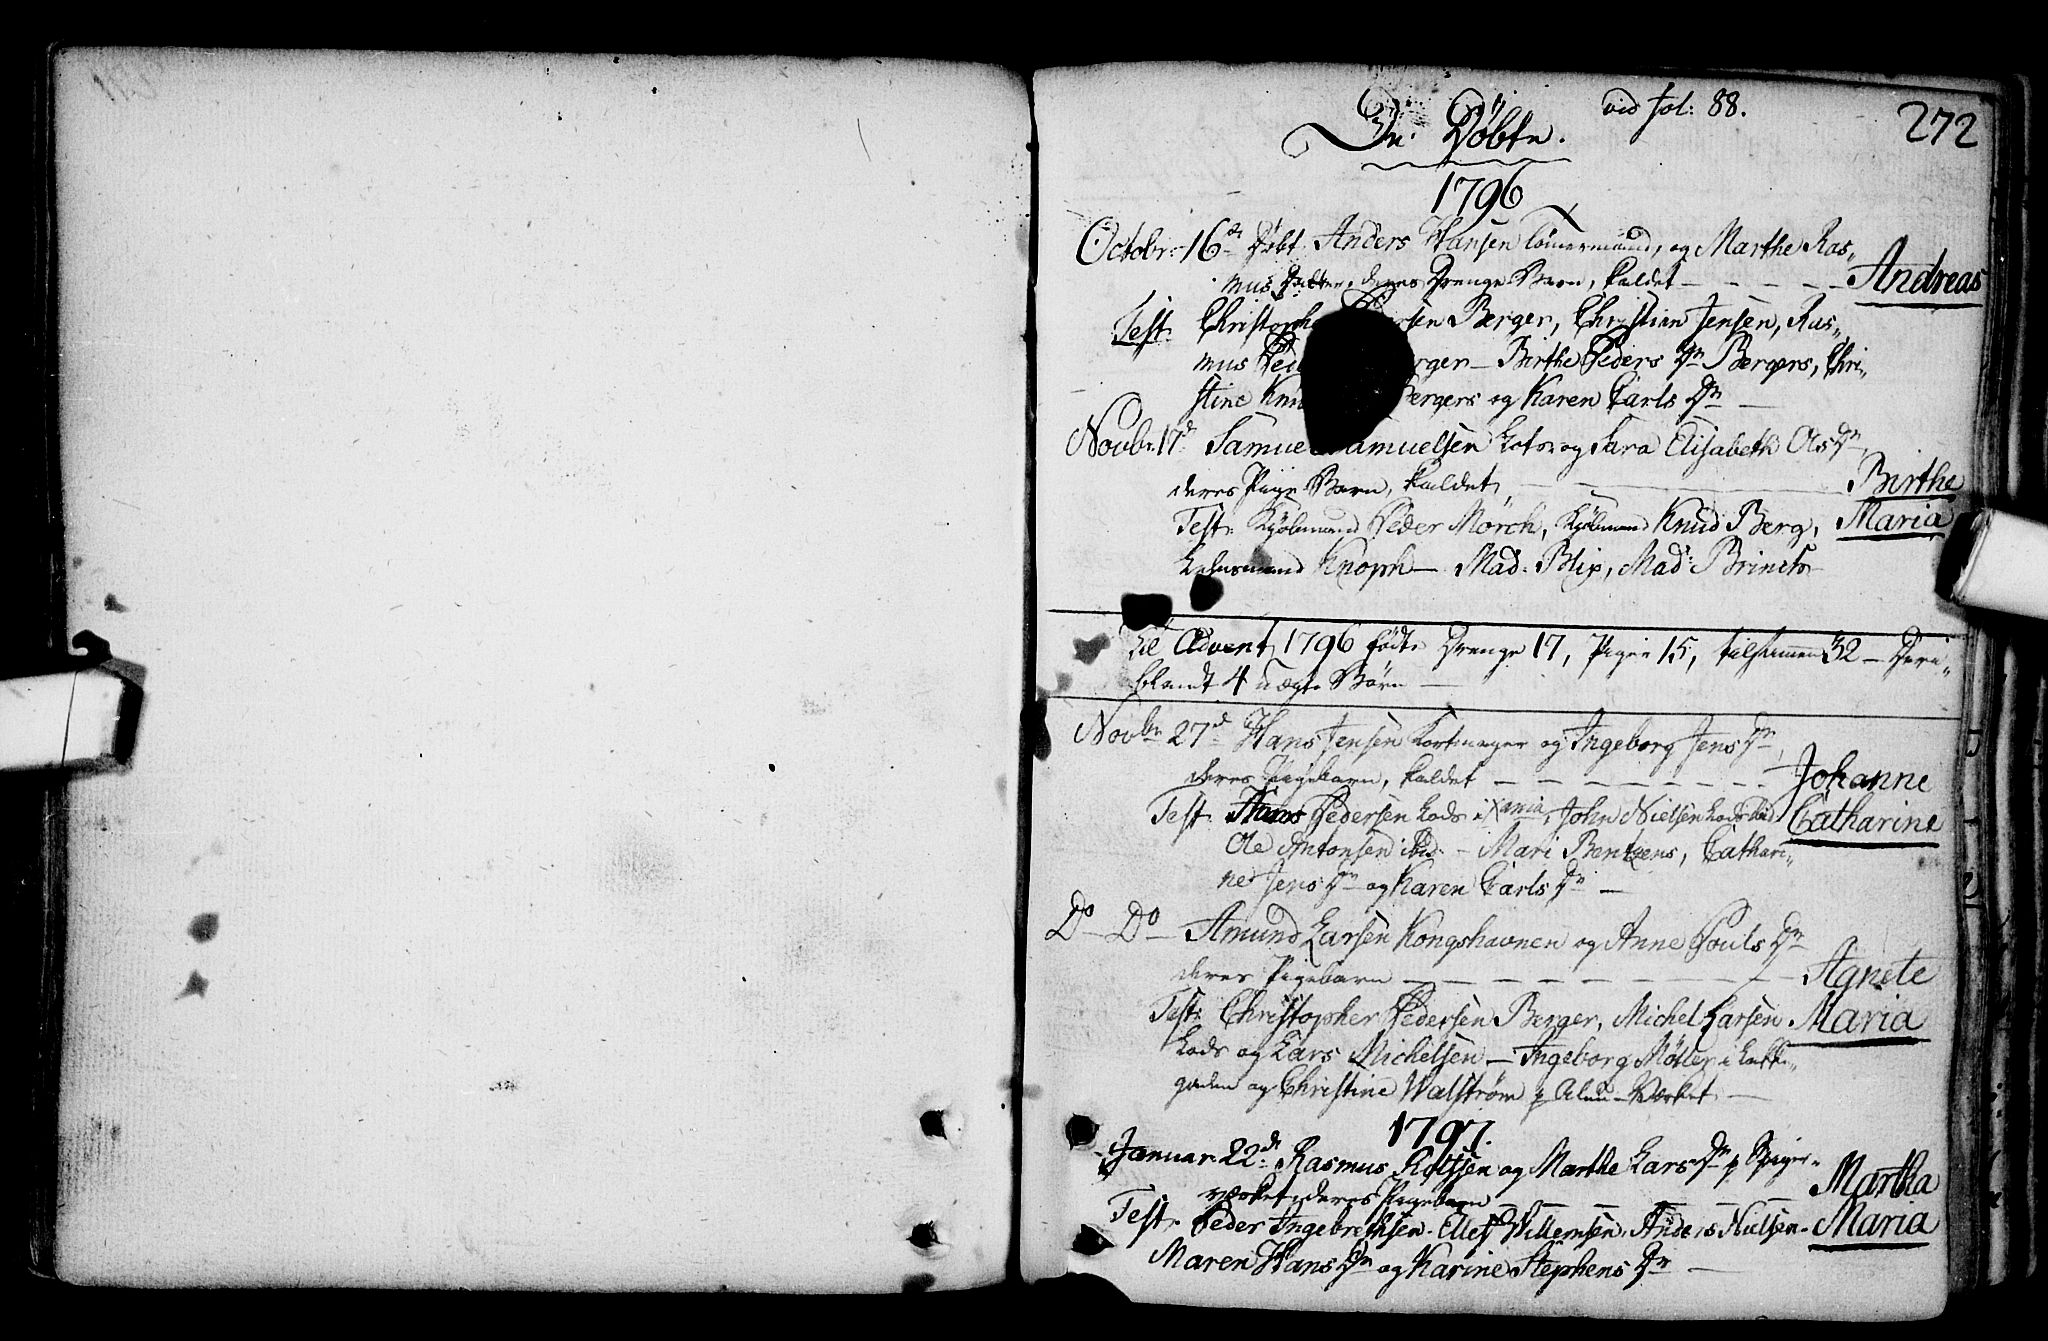 vid fol: 88.
272
De Døbte.
1796
Octobr: 16de Døbt. Anders Hansen Tømermand, og Marthe Ras„
mus Datter, deres Drenge Barn, kaldet — — — — —
Andreas
Test: Christoph ersen Berger, Christian Jensen, Ras„
mus Ped rger — Birthe Peders Dr Bergers, Chri„
stine Knu Bergers og Karen Carls Dr —
Novbr. 17d Samuel Samuelsen Lots og Sara Elisabeth Ols Dr
deres Pige Barn, kaldet, — Birthe
Test: Kjøbmand Peder Mørch, Kjøbmand Knud Berg, Maria
Knoph — Mad. Blix, Mad: Brinch
Til Advent 1796 fødte Drenge 17, Piger 15, tilsammen 32 — Deri„
blandt 4 uægte Børn —
Novbr 27d Hans Jensen og Ingeborg Jens Dr,
deres Pigebarn, kaldet — — — — — — —
Johanne
Test. Hans Pedersen Lods i Xania, John Nielsen Lods ibid
Catharine
Ole Antonsen ibid. — Mari Bentzens, Cathari„
ne Jens Dr og Karen Carls Dr —
Do — Do — Amund Larsen Kongshavnen og Anne Pouls Dr
deres Pigebarn — — — — — — — —
Agnete
Test: Christopher Pedersen Berger, Michel Larsen
Maria
Lods og Lars Michelsen — Ingeborg Møller i
gaden og Christine Walstrøm p Alun-Værket —
1797.
Januar 22d: Rasmus og Marthe Lars Dr p
værket, deres Pigebarn — — — — —
Martha
Test. Peder Ingebrethsen. Ellef Willemsen, Anders Nielsen.
Maria
Maren Hans Dr og Karine Stephens Dr —